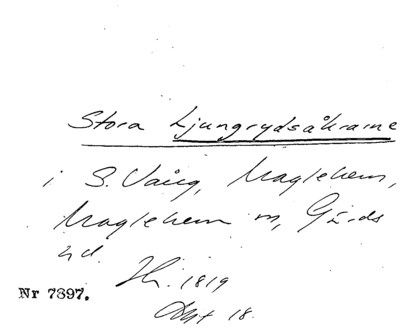 Stora Ljungrydsåkrarne
i S. Vång, Maglehem,
Maglehem sn, Gärds
hd.
1819
Nr 7397.
Akt 18.